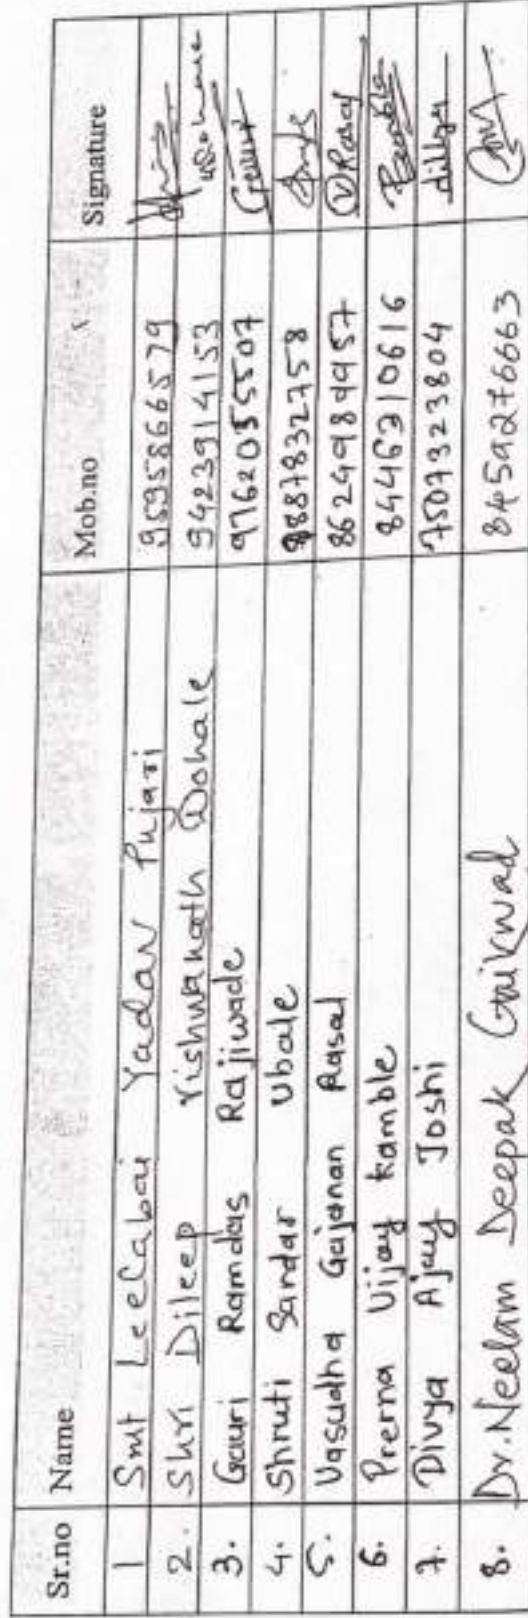 Sr.no Name Mob.no Signature
1 Smt Leelabai Yadav Pujari 9595866579
2. Shri Dileep Vishwanath Dohale 9423914153
3. Gauri Ramdas Rajiwade 9762035507 Gauri
4. Shruti Sardar Ubale 8887832758
5. Vasudha Gajanan Rasal 8624984957 VRasal
6. Prerna Vijay Kamble 8446310616 Pkamble
7. Divya Ajay Joshi 7507323804
8. Dr. Neelam Deepak Gaikwad 8459276663